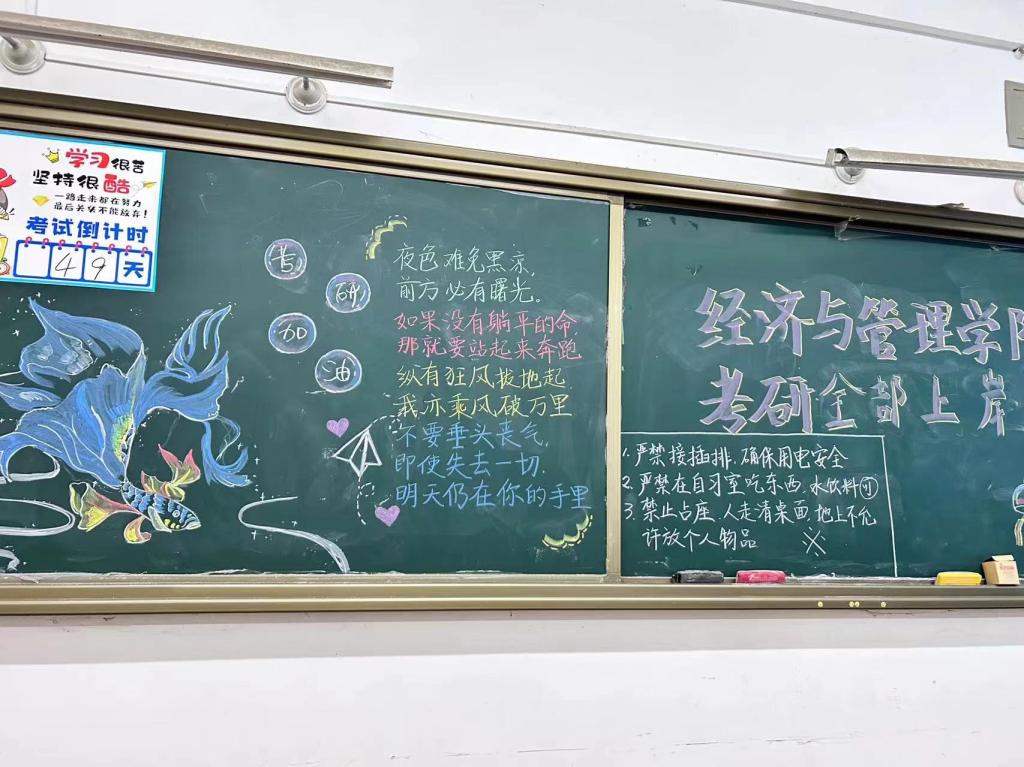 学习很苦
坚持很酷
一路走来都在努力
最后关头不能放弃!
考试倒计时
49天
考
研
加
油
夜色难免黑凉,
前方必有曙光。
如果没有躺平的命
那就要站起来奔跑
纵有狂风拔地起
我亦乘风破万里
不要垂头丧气,
即使失去一切.
明天仍在你的手里
经济与管理学院
考研全部上岸
1.严禁接插排.确保用电安全
2.严禁在自习室吃东西.水饮料可
3.禁止占座.人走清桌面.地上不允
许放个人物品